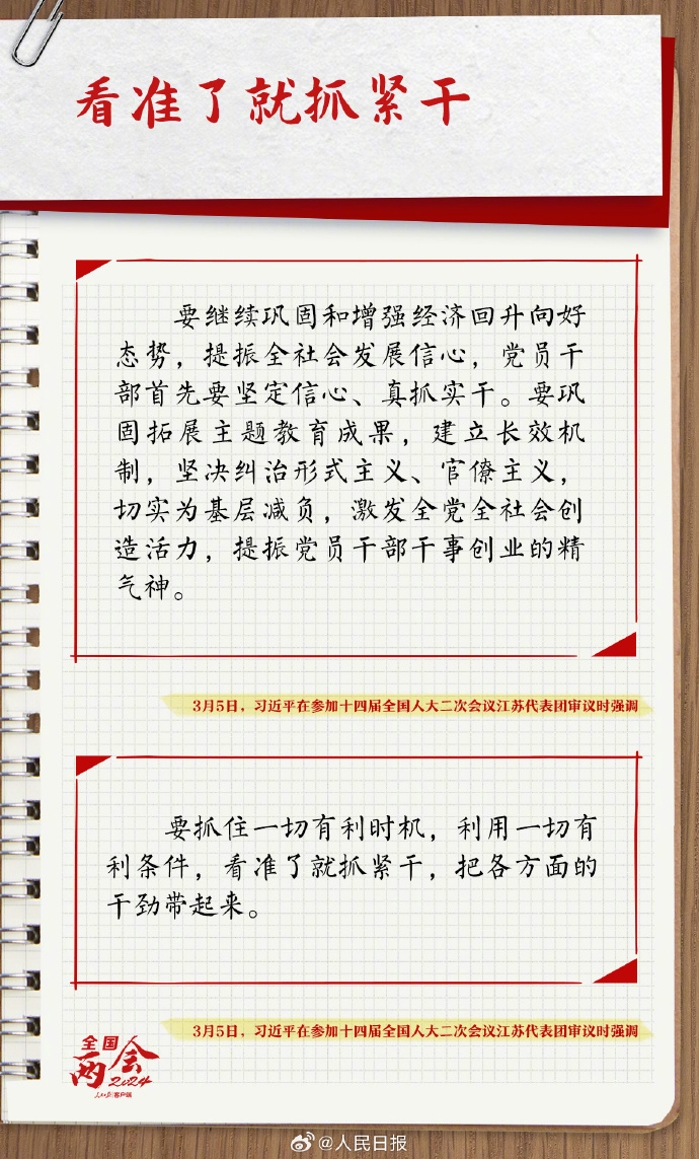 看准了就抓紧干
要继续巩固和增强经济回升向好
态势，提振全社会发展信心，党员干
部首先要坚定信心、真抓实干。要巩
固拓展主题教育成果，建立长效机
制，坚决纠治形式主义、官僚主义，
切实为基层减负，激发全党全社会创
造活力，提振党员干部干事创业的精
气神。
3月5日，习近平在参加十四届全国人大二次会议江苏代表团审议时强调
要抓住一切有利时机，利用一切有
利条件，看准了就抓紧干，把各方面的
干劲带起来。
3月5日，习近平在参加十四届全国人大二次会议江苏代表团审议时强调
全国
两会
2024
人民日报客户端
@人民日报